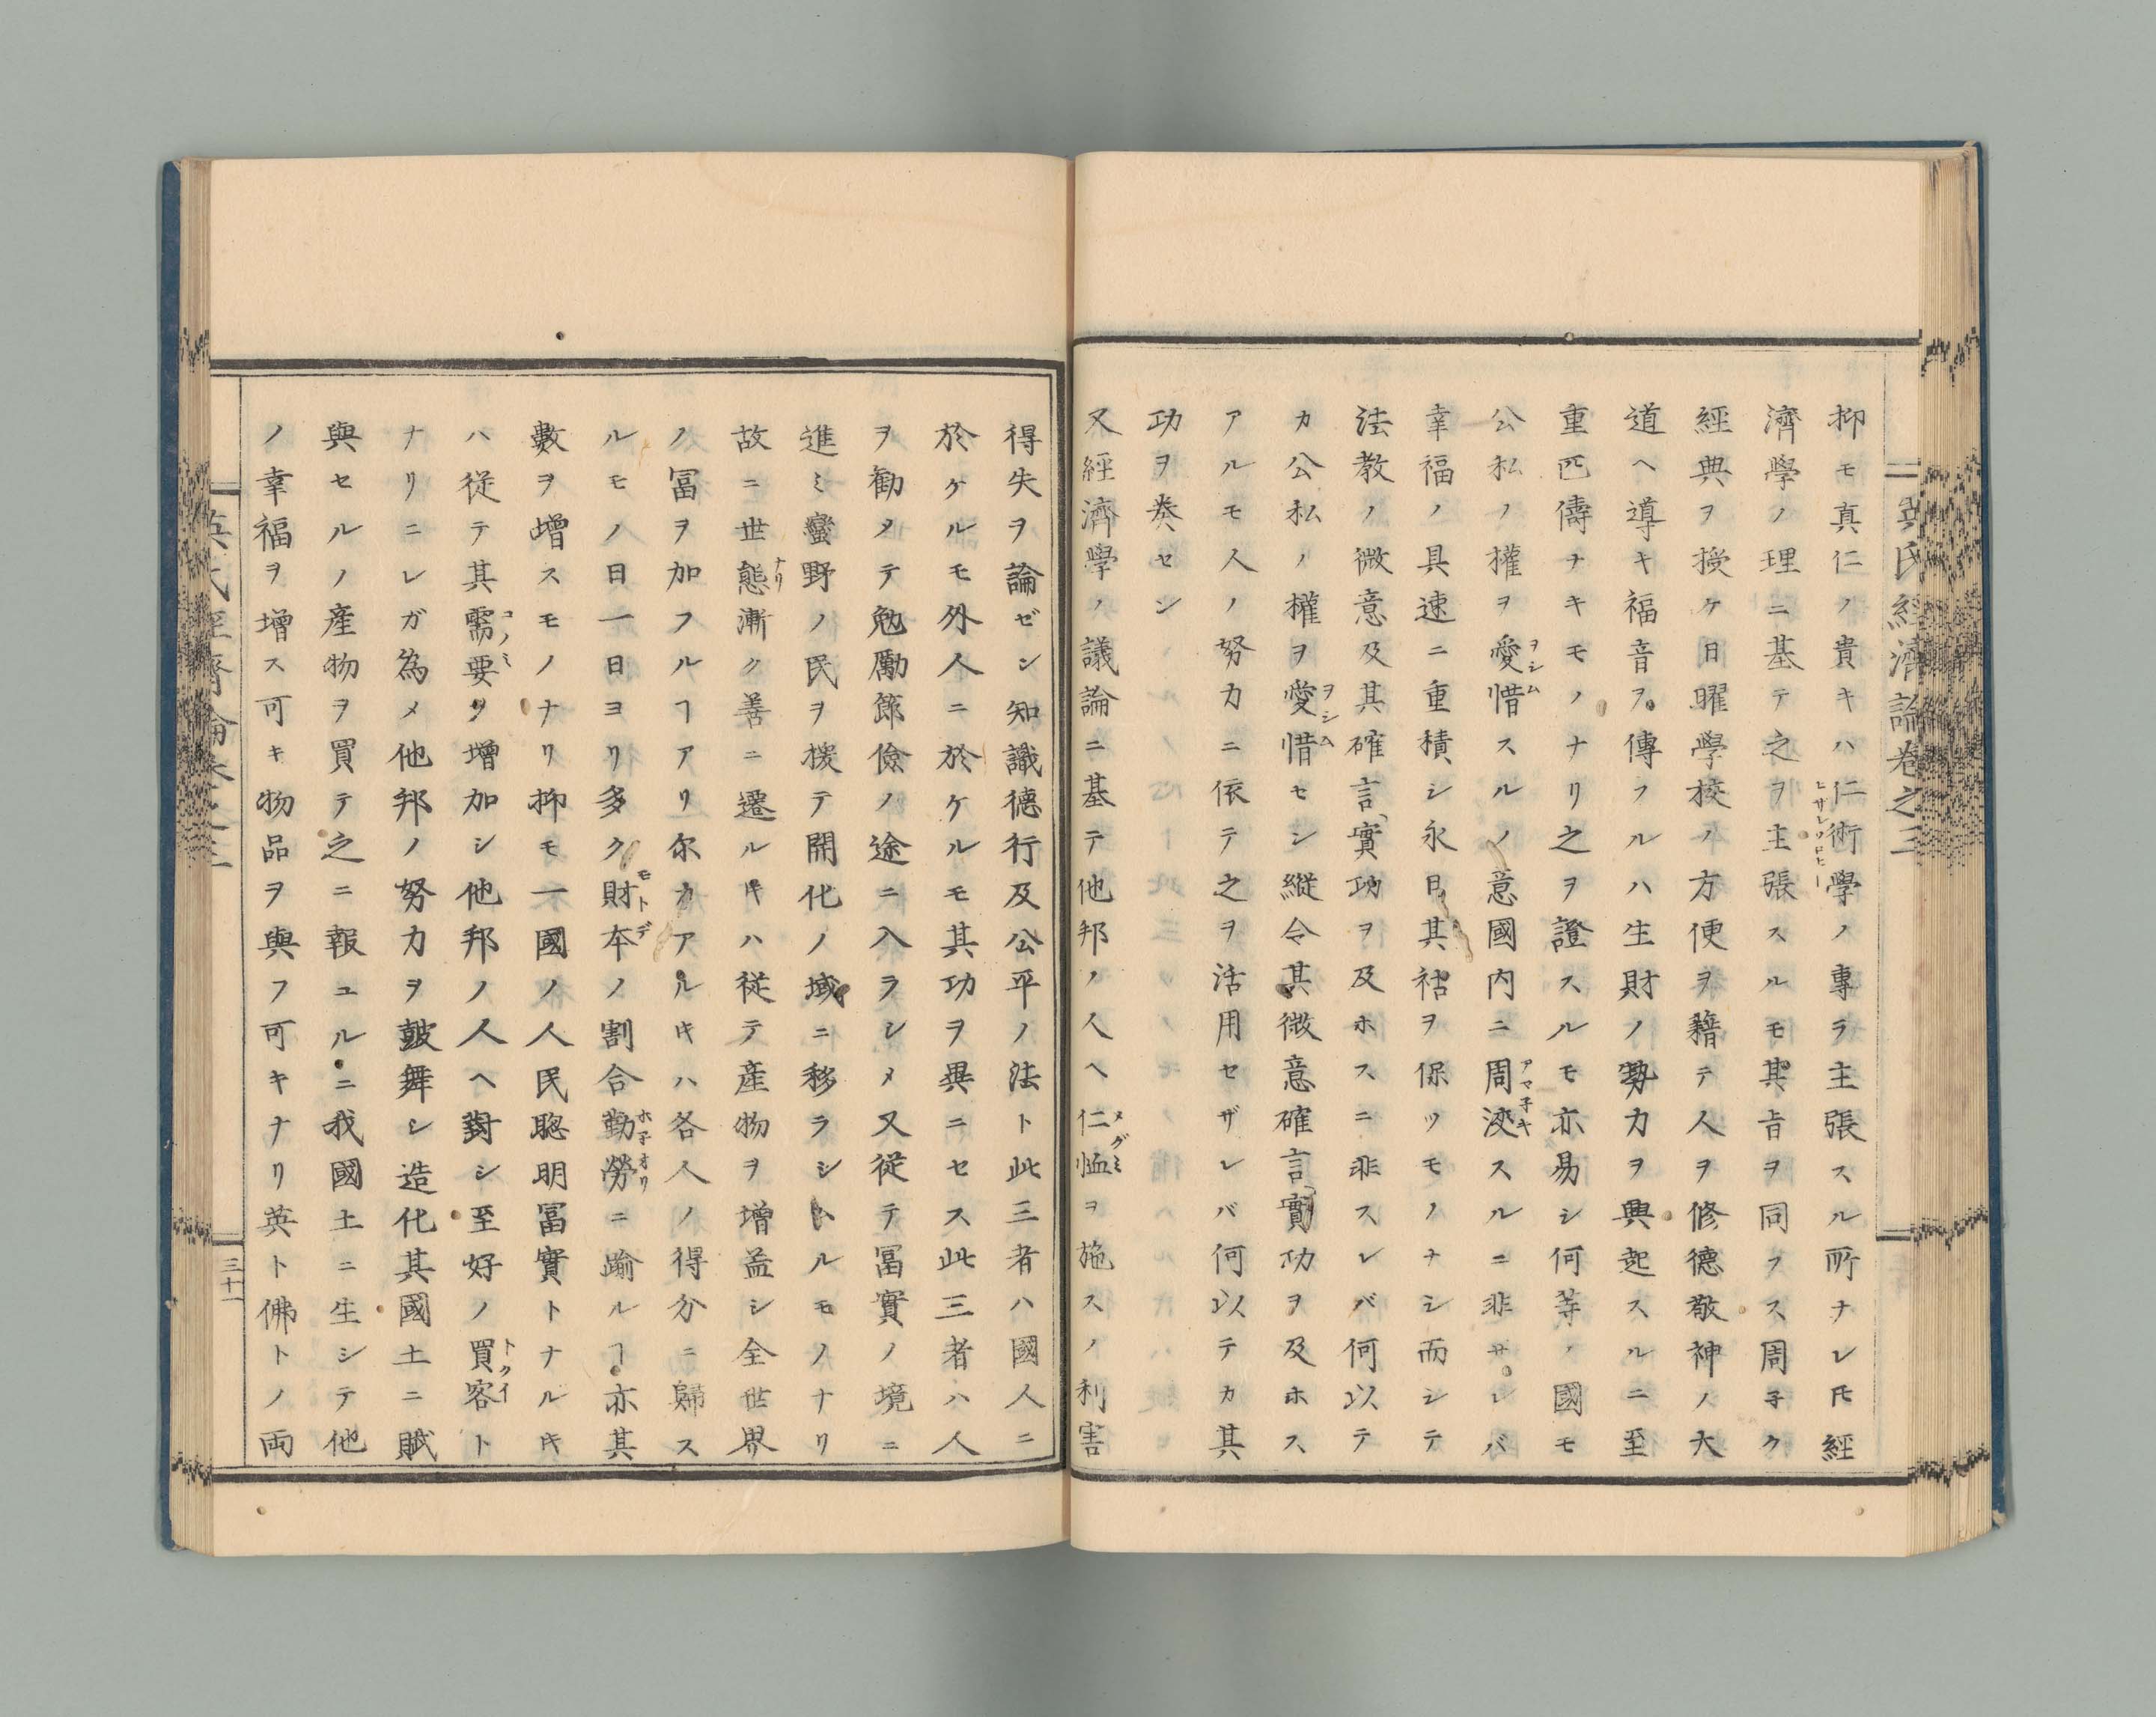 英氏經濟論卷之三
抑モ真仁ノ貴キハ仁術學ノ專ラ主張スル所ナレ𪜈經
濟學ノ理ニ基テ之ヲ主張スルモ其旨ヲ同フス周子ク
經典ヲ授ケ日曜學校ノ方便ヲ藉テ人ヲ修德敬神ノ大
道ヘ導キ福音ヲ傳フルハ生財ノ勢力ヲ興起スルニ至
重匹儔ナキモノナリ之ヲ證スルモ亦易シ何等ノ國モ
公私ノ權ヲ愛惜スルノ意國內ニ周浹スルニ非サレバ
幸福ノ具速ニ重積シ永日其祜ヲ保ツモノナシ而シテ
法教ノ微意及其確言實功ヲ及ホスニ非スレバ何以テ
カ公私ノ權ヲ愛惜セシ縱令其微意確言實功ヲ及ホス
アルモ人ノ努力ニ依テ之ヲ活用セザレバ何以テカ其
功ヲ奏セン
又經濟學ノ議論ニ基テ他邦ノ人ヘ仁恤ヲ施スノ利害
得失ヲ論ゼン知識德行及公平ノ法ト此三者ハ國人ニ
於ケルモ外人ニ於ケルモ其功ヲ異ニセス此三者ハ人
ヲ勸メテ勉勵節儉ノ途ニ入ラシメ又從テ冨實ノ境ニ
進ミ蠻野ノ民ヲ援テ開化ノ域ニ移ラシムルモノナリ
故ニ世態漸ク善ニ遷ルキハ從テ產物ヲ增益シ全世界
ノ冨ヲ加フルヿアリ尓カアルキハ各人ノ得分ニ歸ス
ルモノ日一日ヨリ多ク財本ノ割合勤勞ニ踰ルヿ亦其
數ヲ增スモノナリ抑モ一國ノ人民聰明冨實トナルキ
ハ從テ其需要ヲ增加シ他邦ノ人ヘ對シ至好ノ買客ト
ナリニレガ為メ他邦ノ努力ヲ鼓舞シ造化其國土ニ賦
與セルノ產物ヲ買テ之ニ報ユルニ我國土ニ生シテ他
ノ幸福ヲ增ス可キ物品ヲ與フ可キナリ英ト佛トノ両
三十一